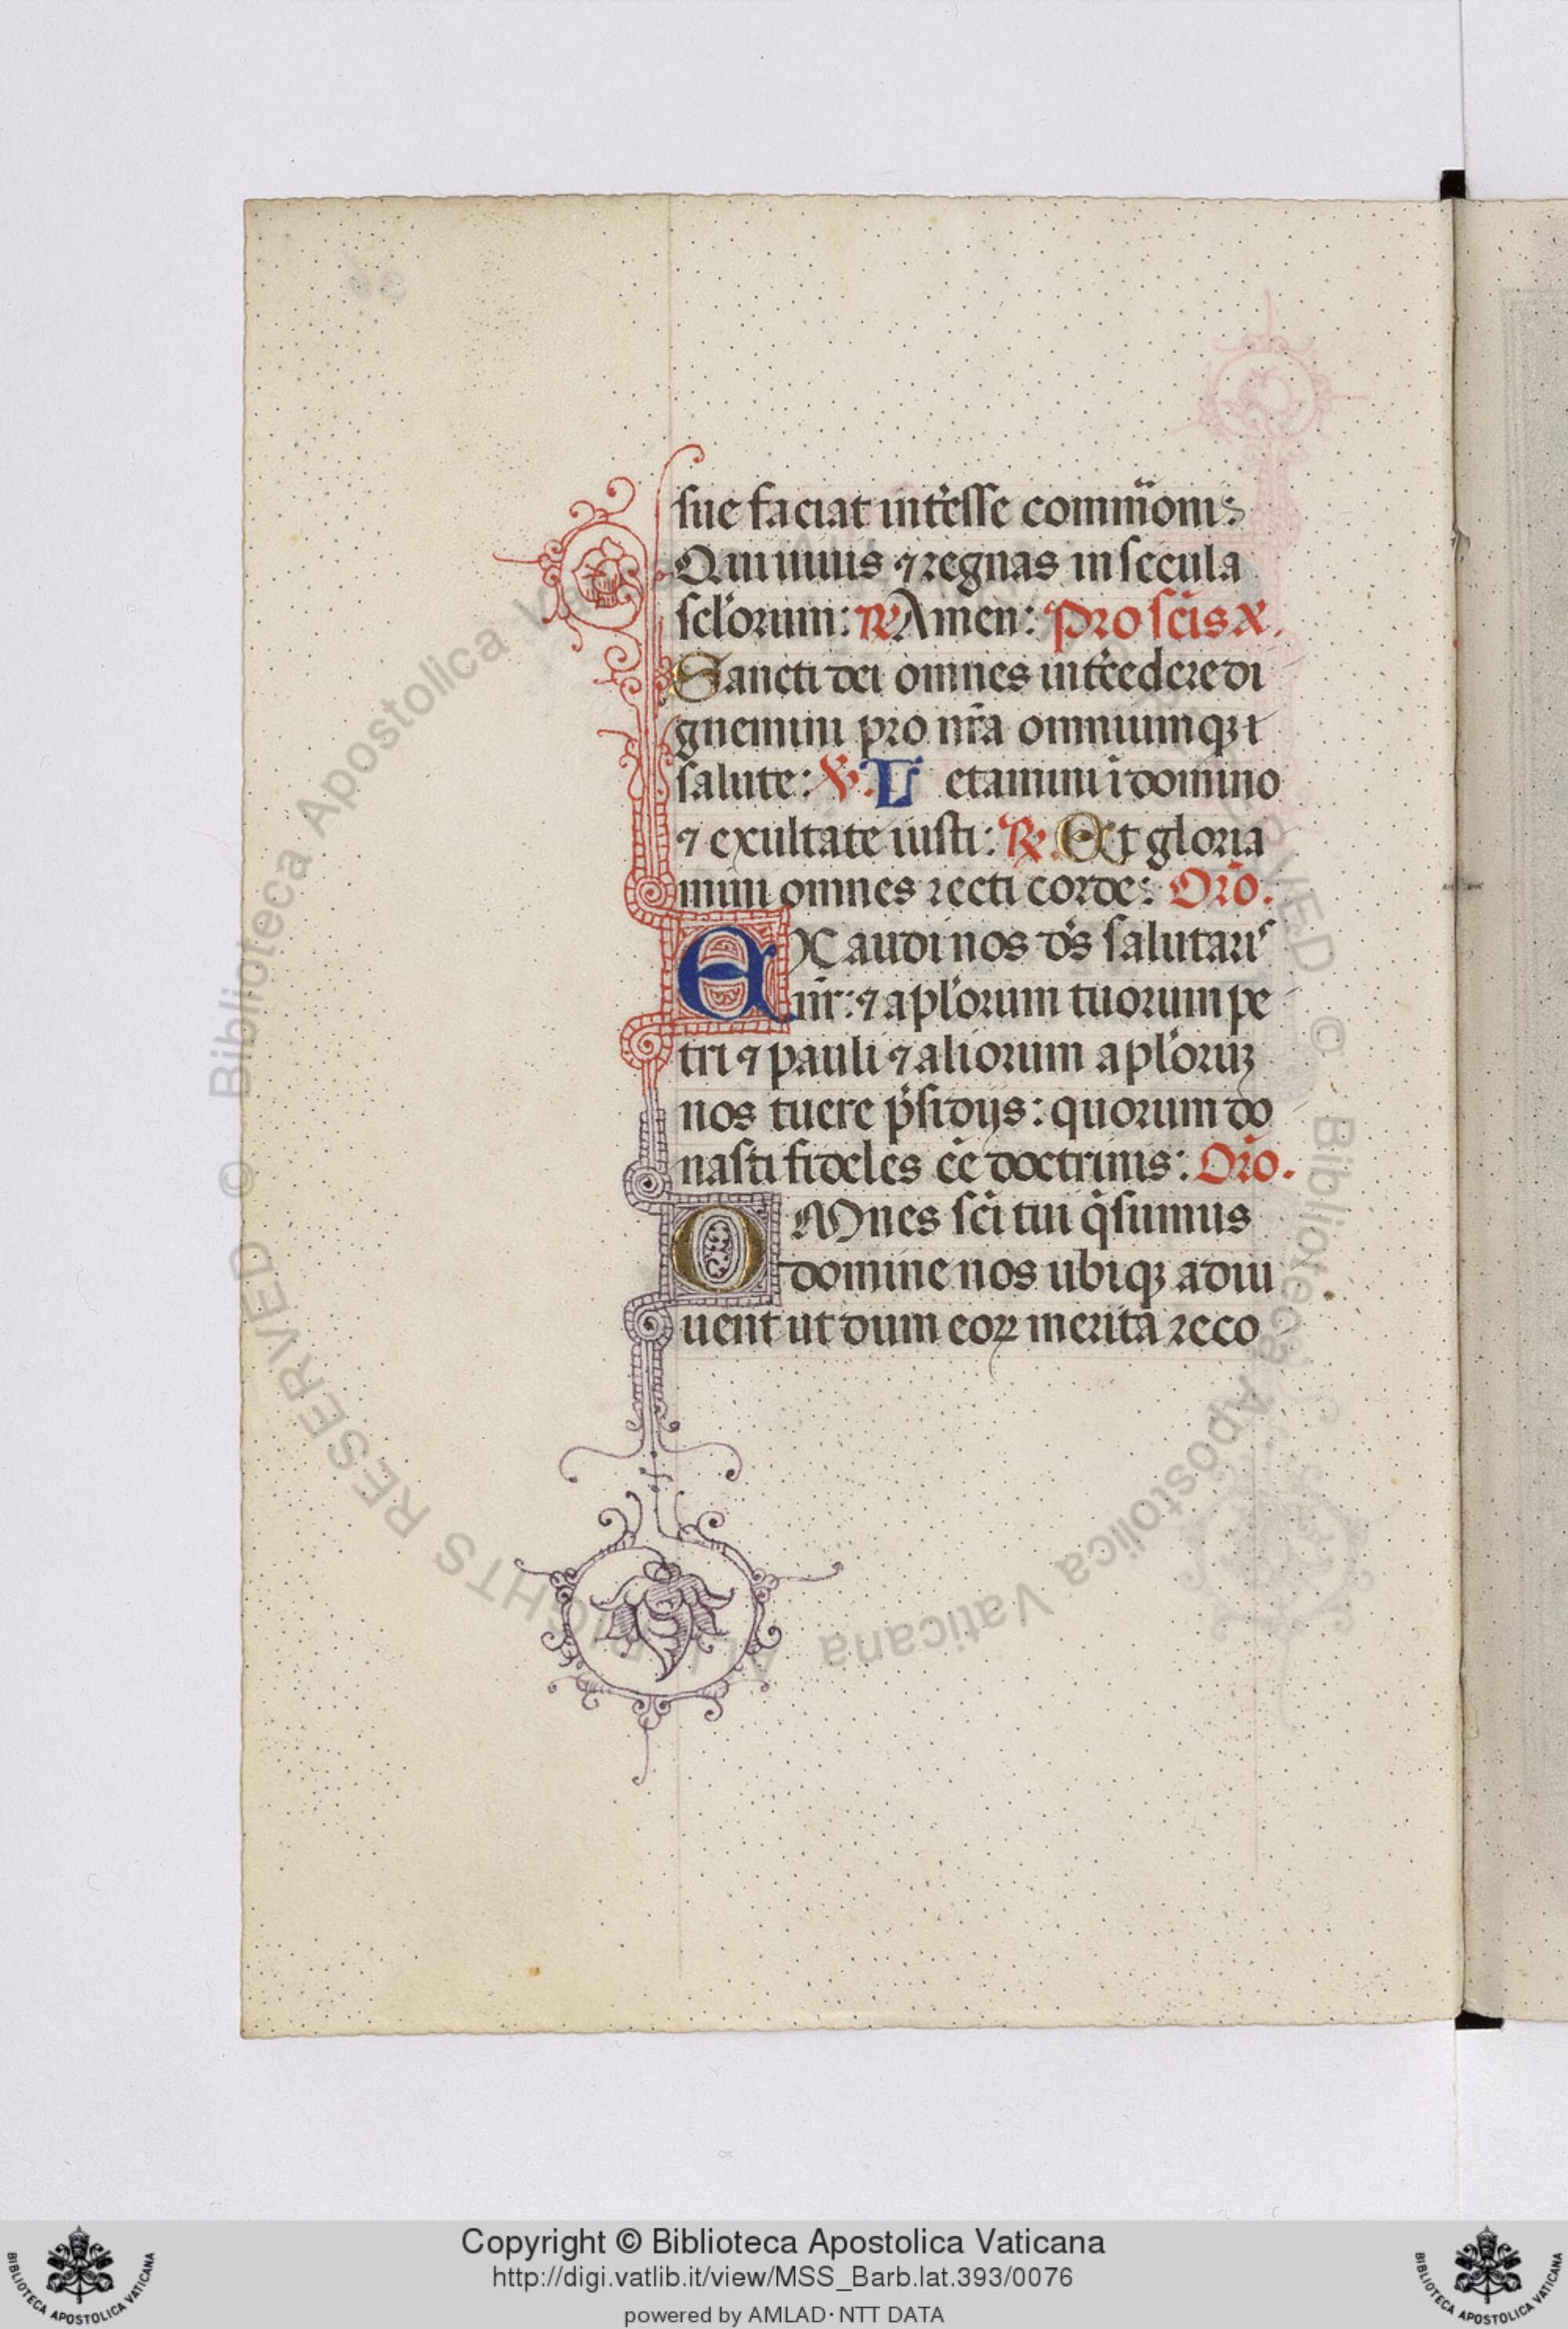 sue faciat int̾esse commu̅ionis
Qui uiuis ⁊ regnas in secula
scl'orum: ℟ Amen: Pro sc̅is ꝟ.
Sancti dei omnes int̾cedere di
gnemini pro nr̅a omniumqꝫ
salute: ℣. Letamini i̅ domino
⁊ exultate iusti: ℟. Et gloria
mini omnes recti corde: Or̅o.
EXaudi nos d's salutaris
nr̅: ⁊ apl'orum tuorum pe
tri ⁊ pauli ⁊ aliorum apl'oruꝫ
nos tuere p̾sidijs: quorum do
nasti fideles ee̅ doctrinis: Or̅o.
OMnes sc̅i tui q̾sumus
domine nos ubiqꝫ adiu
uent ut dum eoꝝ merita reco
© Biblioteca Apostolica Vaticana ALL RIGHTS RESERVED
Copyright © Biblioteca Apostolica Vaticana
http://digi.vatlib.it/view/MSS_Barb.lat.393/0076
powered by AMLAD·NTT DATA
BIBLIOTECA APOSTOLICA VATICANA
BIBLIOTECA APOSTOLICA VATICANA